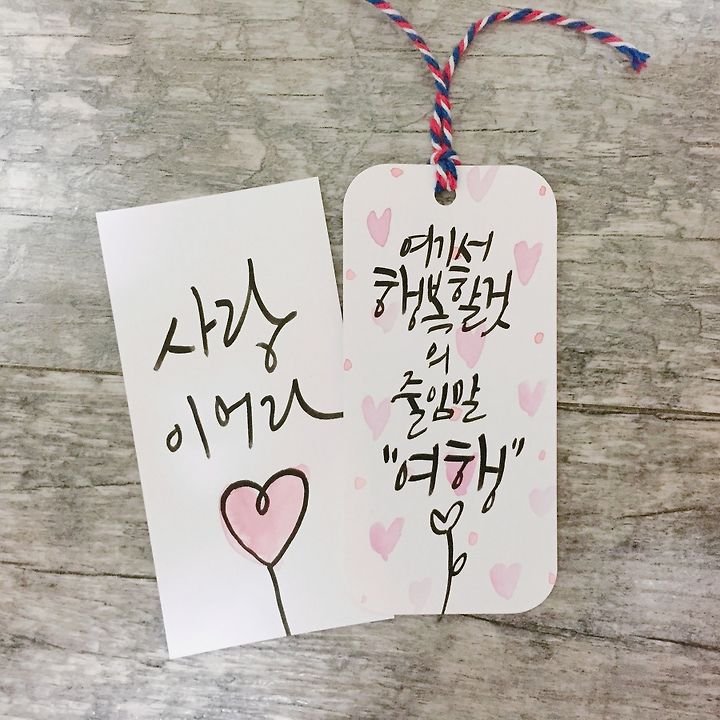 사랑
이어라
여기서
행복할것
의
줄임말
"여행"